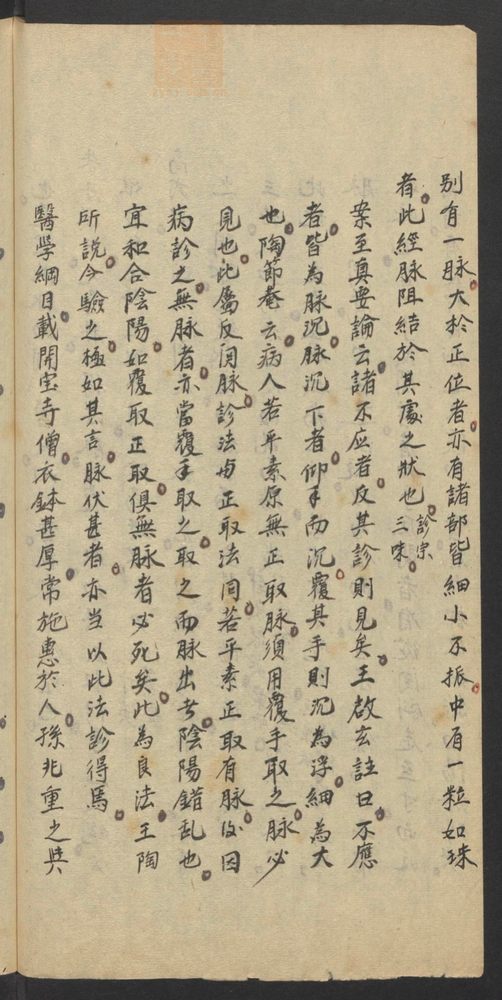 別有一脉大於正位者亦有諸部皆細小不振中有一粒如珠
者此經脉阻結於其處之狀也診宗三昧
案至真要論云諸不应者反其診則見矣王啟玄註曰不應
者皆為脉沉脉沉下者仰手而沉覆其手則沉為浮細為大
也陶節菴云病人若平素原無正取脉須用覆手取之脉必
見也此屬反関脉診法与正取法同若平素正取有脉後因
病診之無脉者亦當覆手取之取之而脉出者陰陽錯乱也
宜和合陰陽如覆取正取俱無脉者必死矣此為良法王陶
所說今驗之極如其言脉伏甚者亦当以此法診得焉
醫學綱目載開宝寺僧衣鉢甚厚常施惠於人孫兆重之与